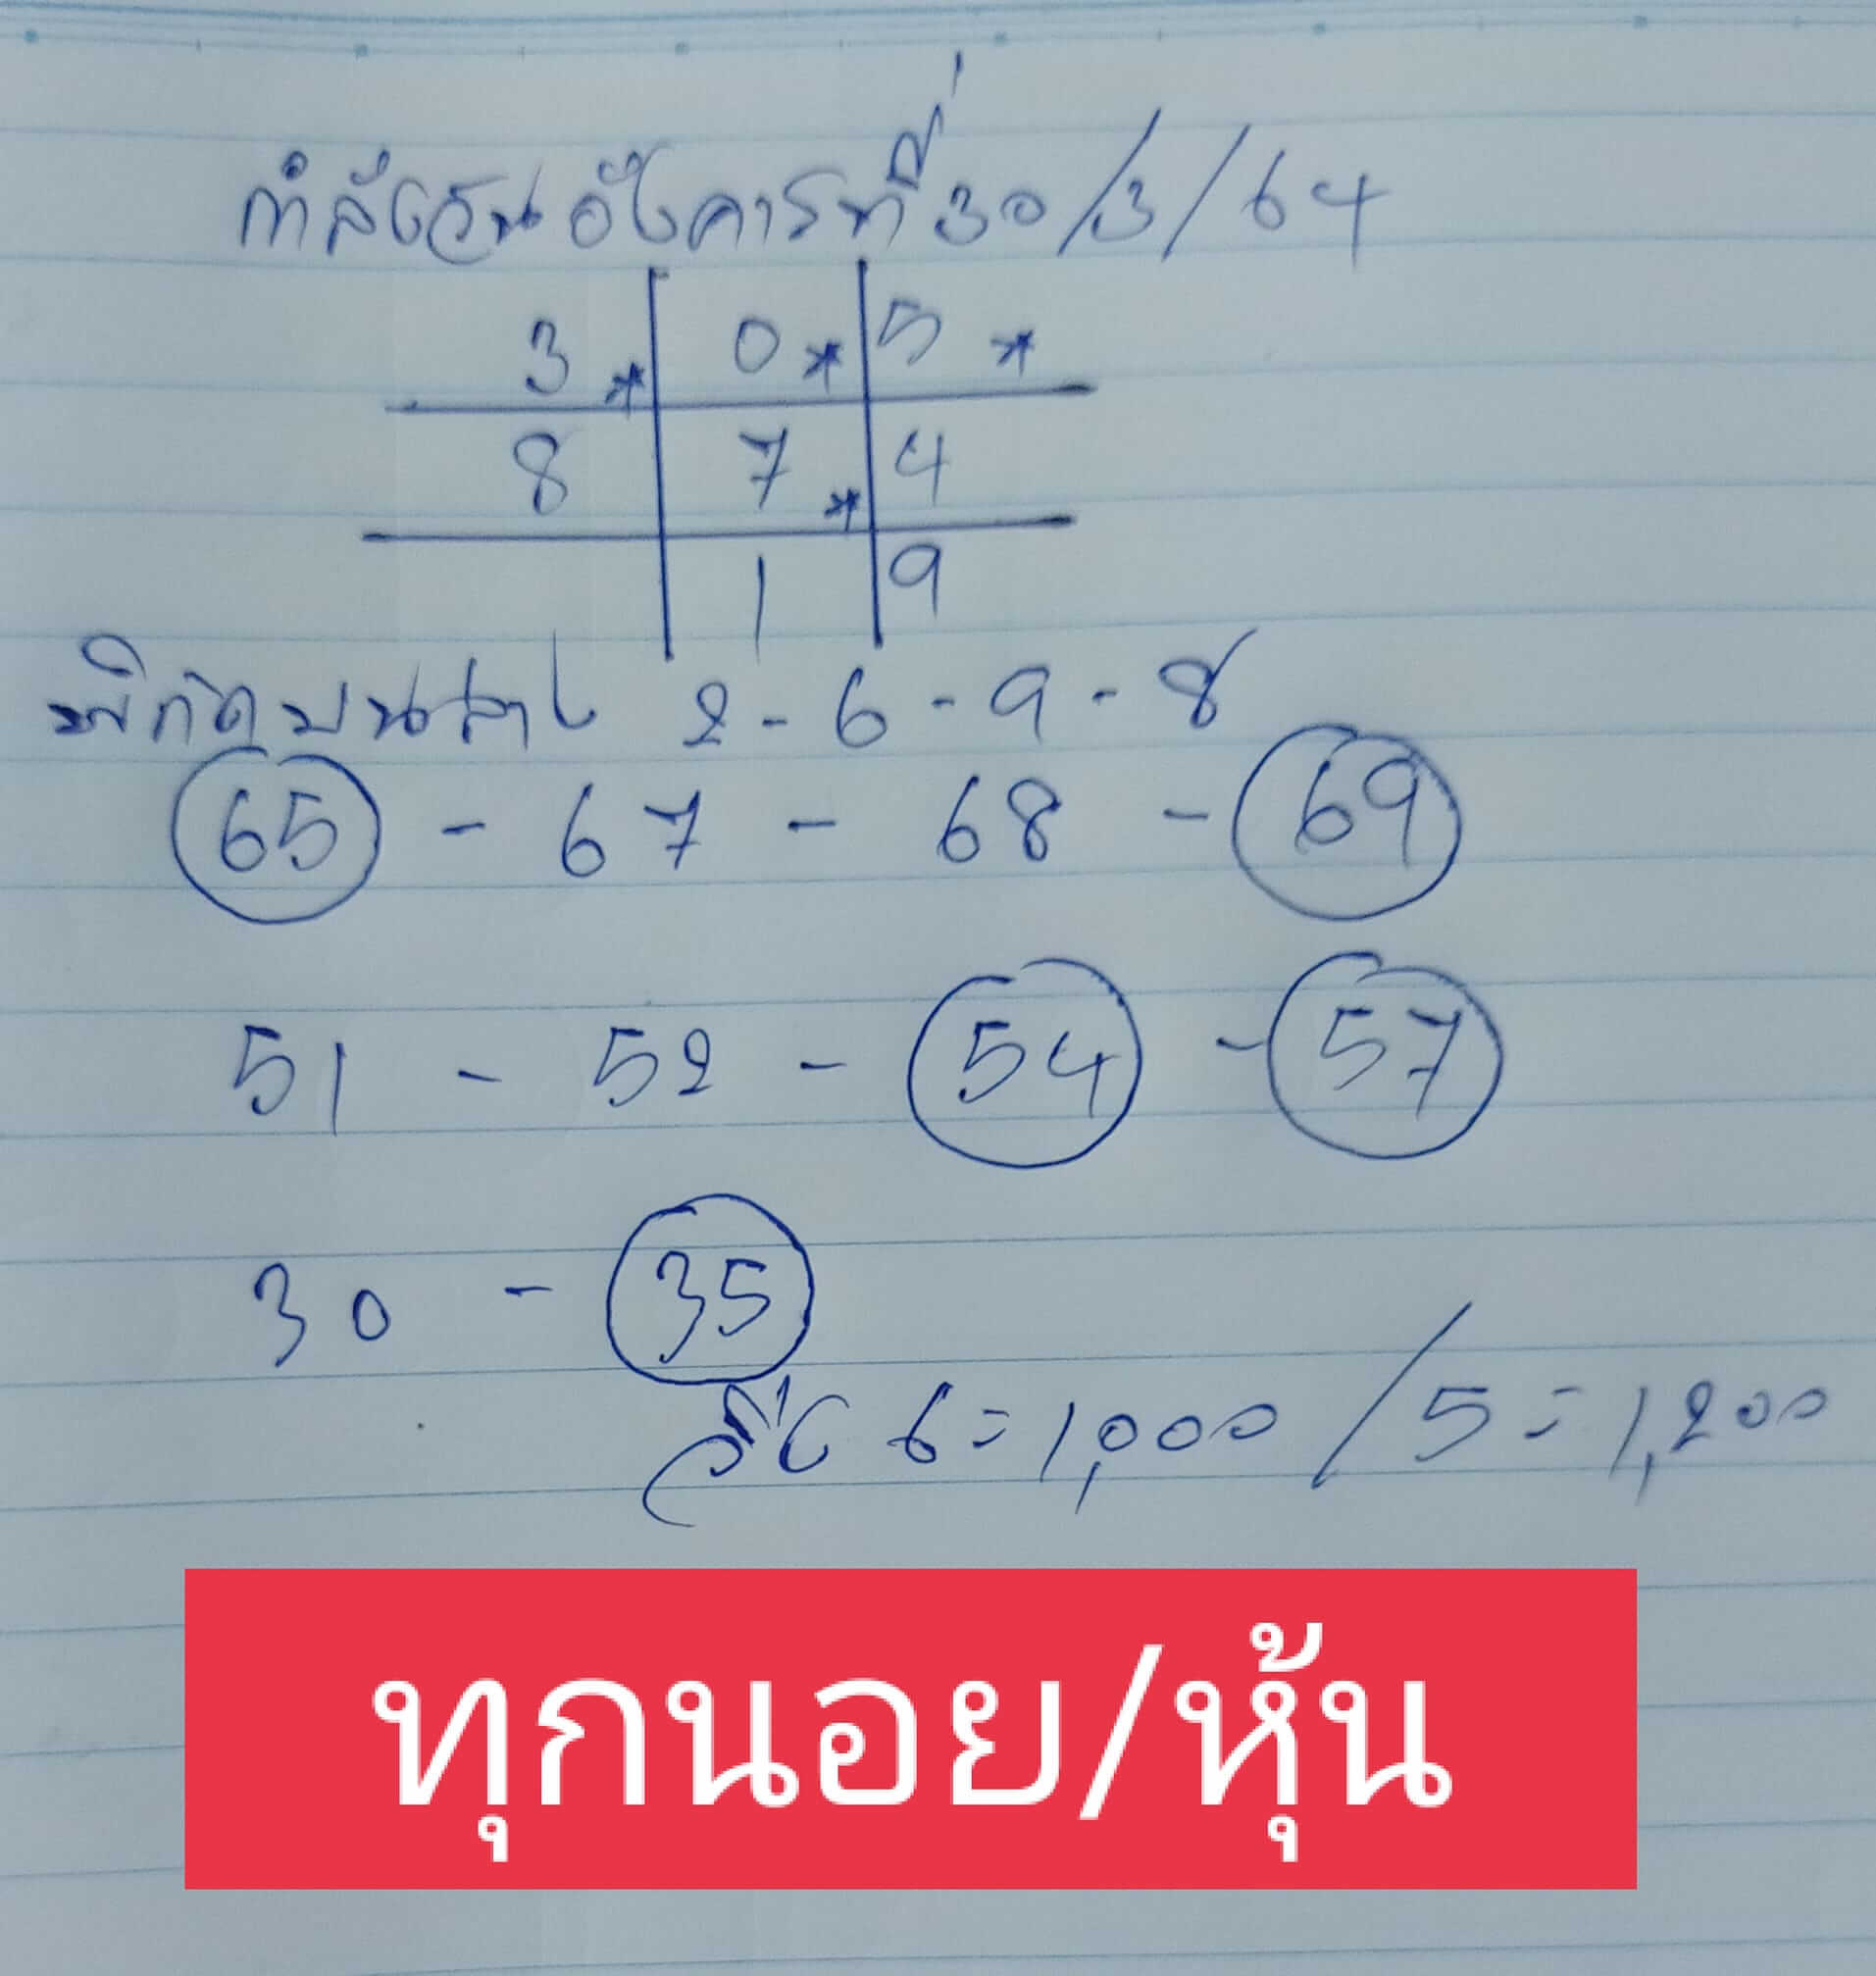 กำลังวันอังคารที่ 30/3/64
3* 0* 5*
8 7* 4
1 9
พิกัดบนล่าง 2-6-9-8
65 - 67 - 68 - 69
51 - 52 - 54 - 57
30 - 35
วิ่ง 6=1,000 / 5=1,200
ทุกนอย/หุ้น